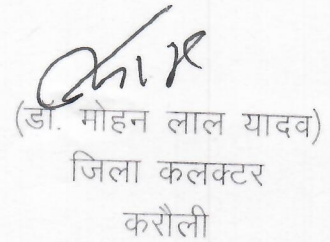 (डॉ. मोहन लाल यादव)
जिला कलक्टर
करौली